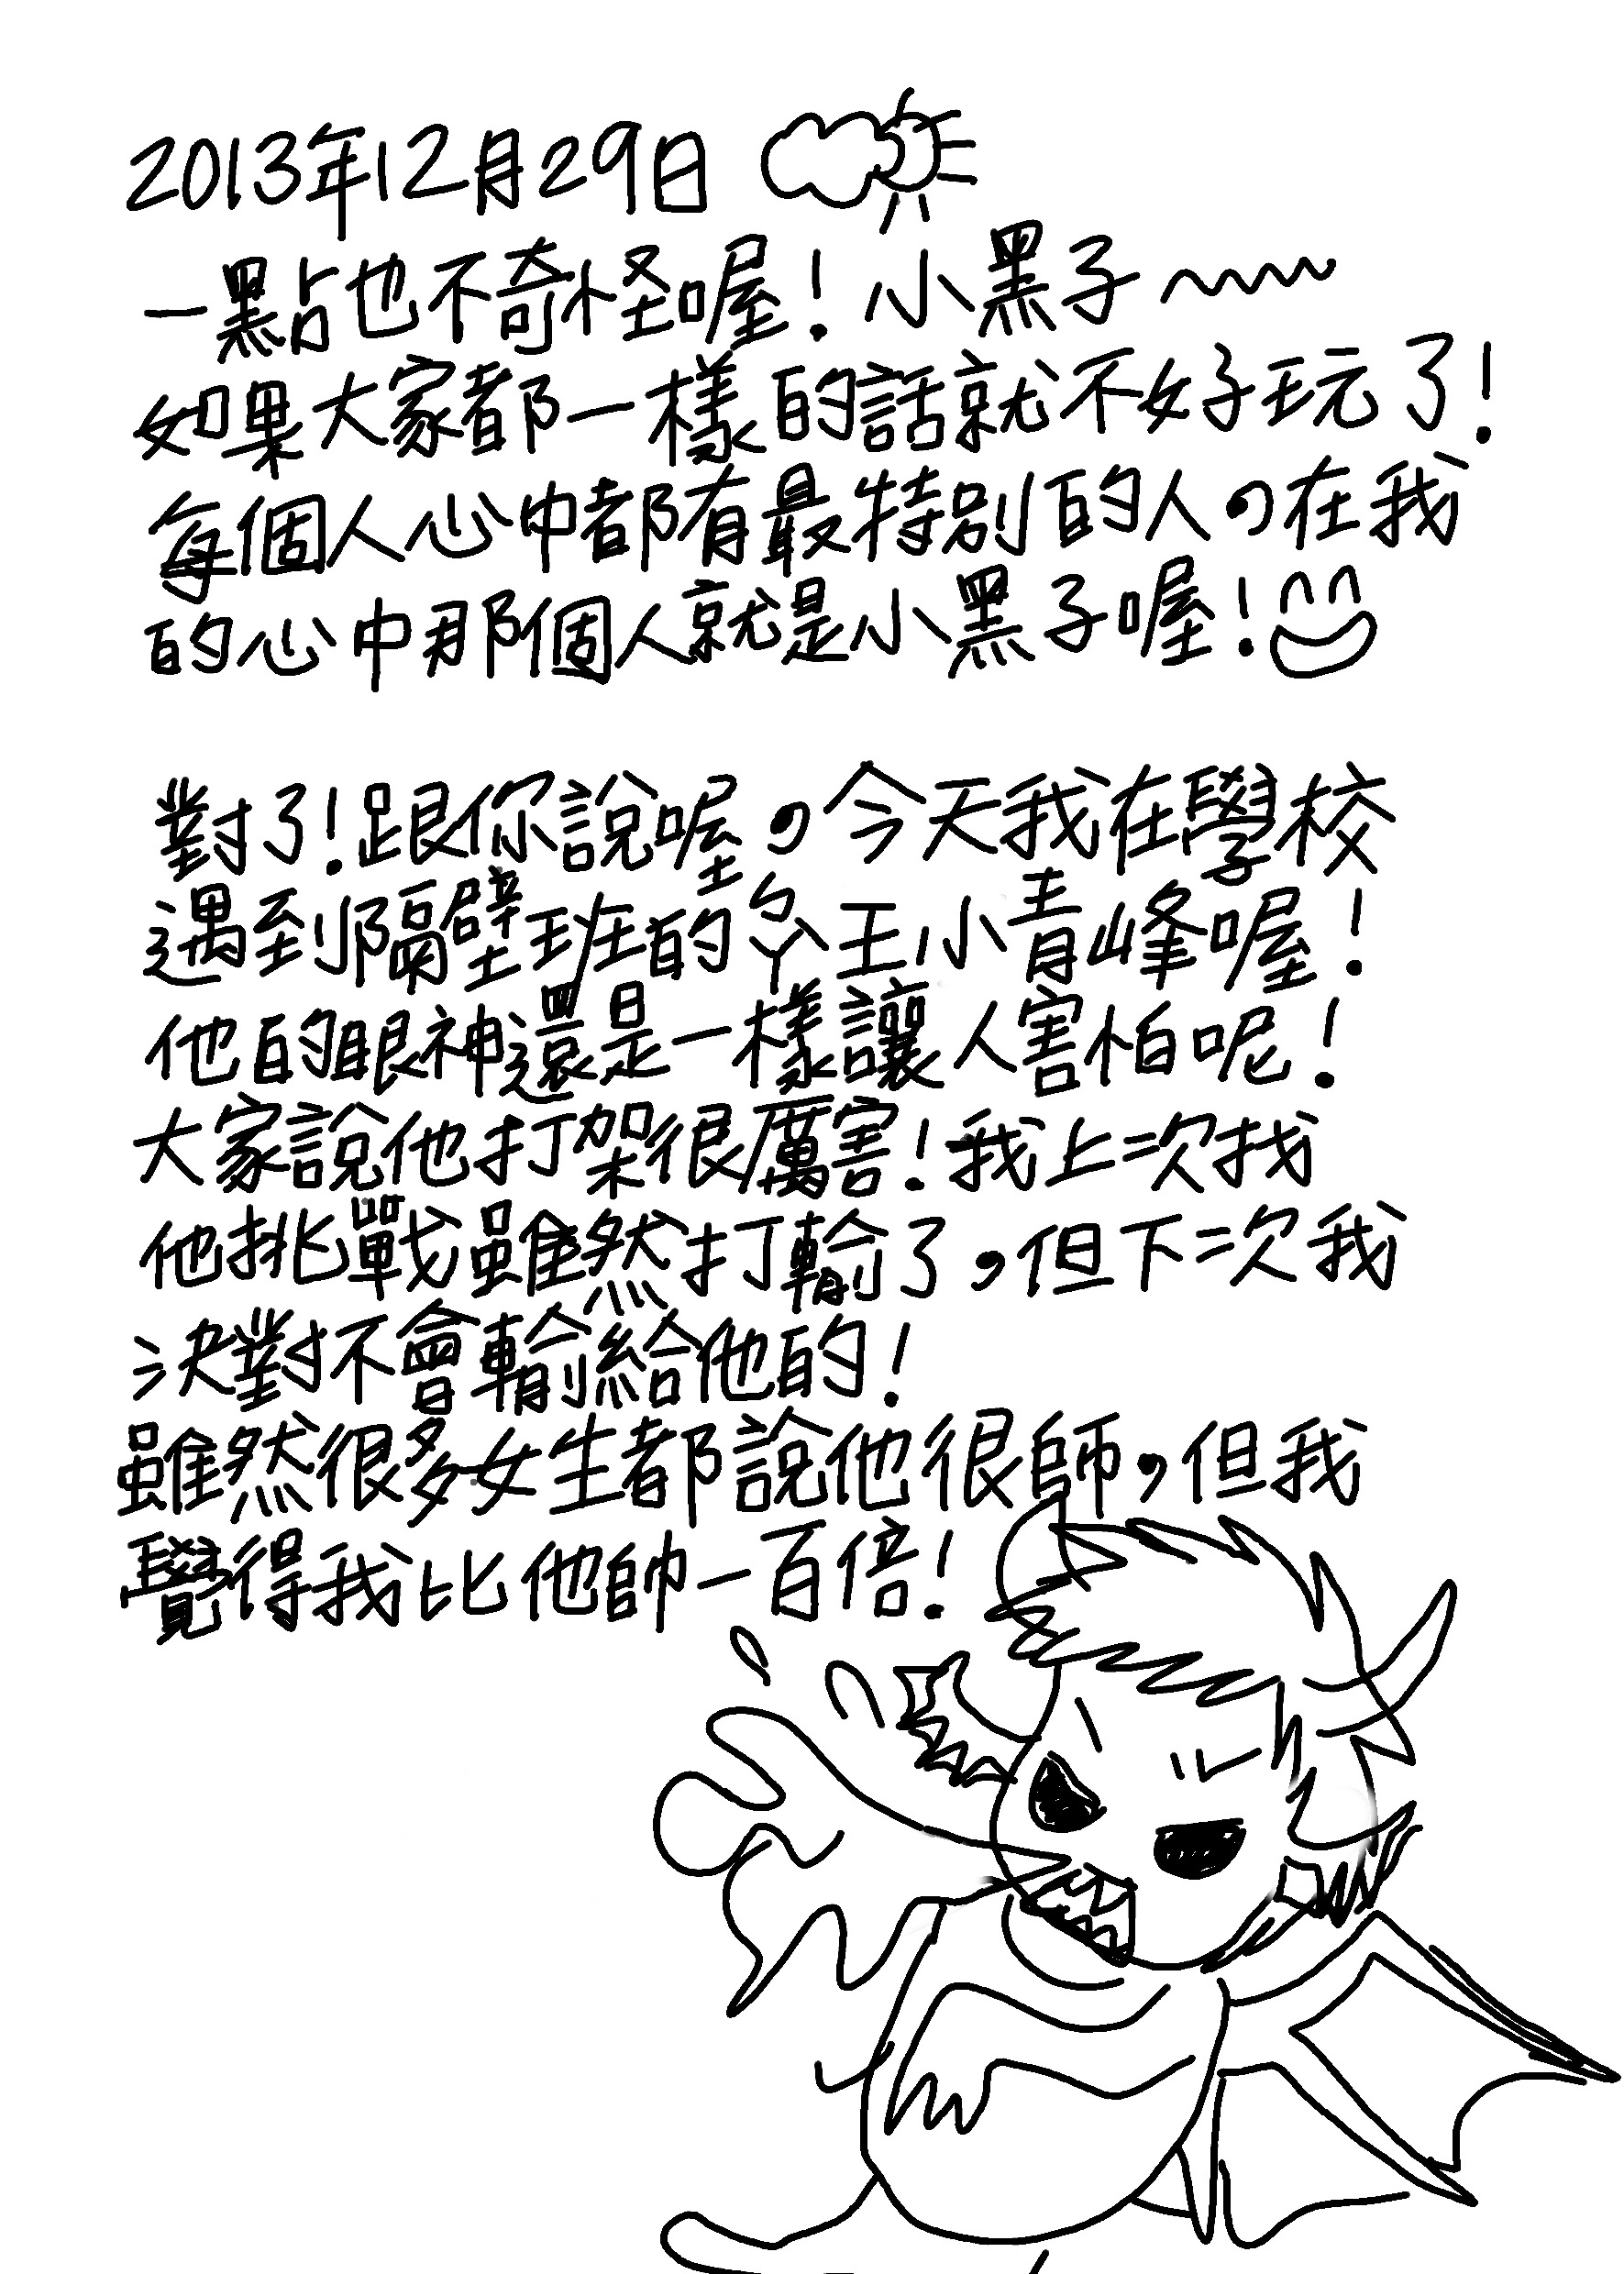 2013年12月29日
一點也不奇怪喔！小黑子~~~~
如果大家都一樣的話就不好玩了！
每個人心中都有最特別的人，在我
的心中那個人就是小黑子喔！
對了！跟你說喔，今天我在學校
遇到隔壁班的ㄅㄚ王小青峰喔！
他的眼神還是一樣讓人害怕呢！
大家說他打架很厲害！我上次找
他挑戰雖然打輸了，但下次我
決對不會輸給他的！
雖然很多女生都說他很師，但我
覺得我比他帥一百倍！